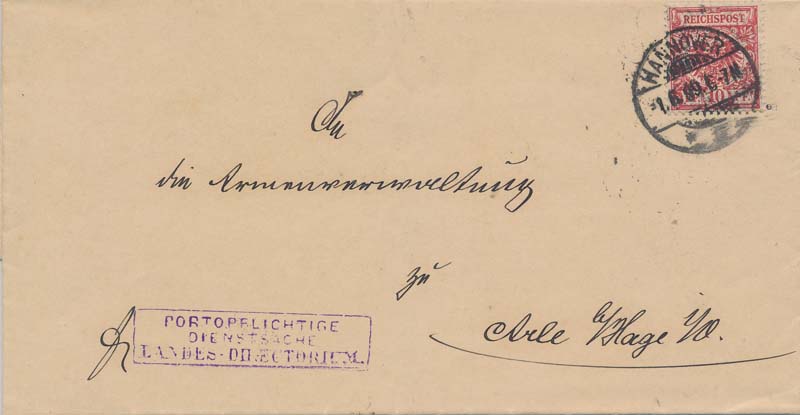 REICHSPOST
HANNOVER
1.6.99.6-7N.
10
An
die Armenverwaltung
zu
Arle b/Hage i/O.
PORTOPFLICHTIGE
DIENSTSACHE
LANDES-DIRECTORIUM.